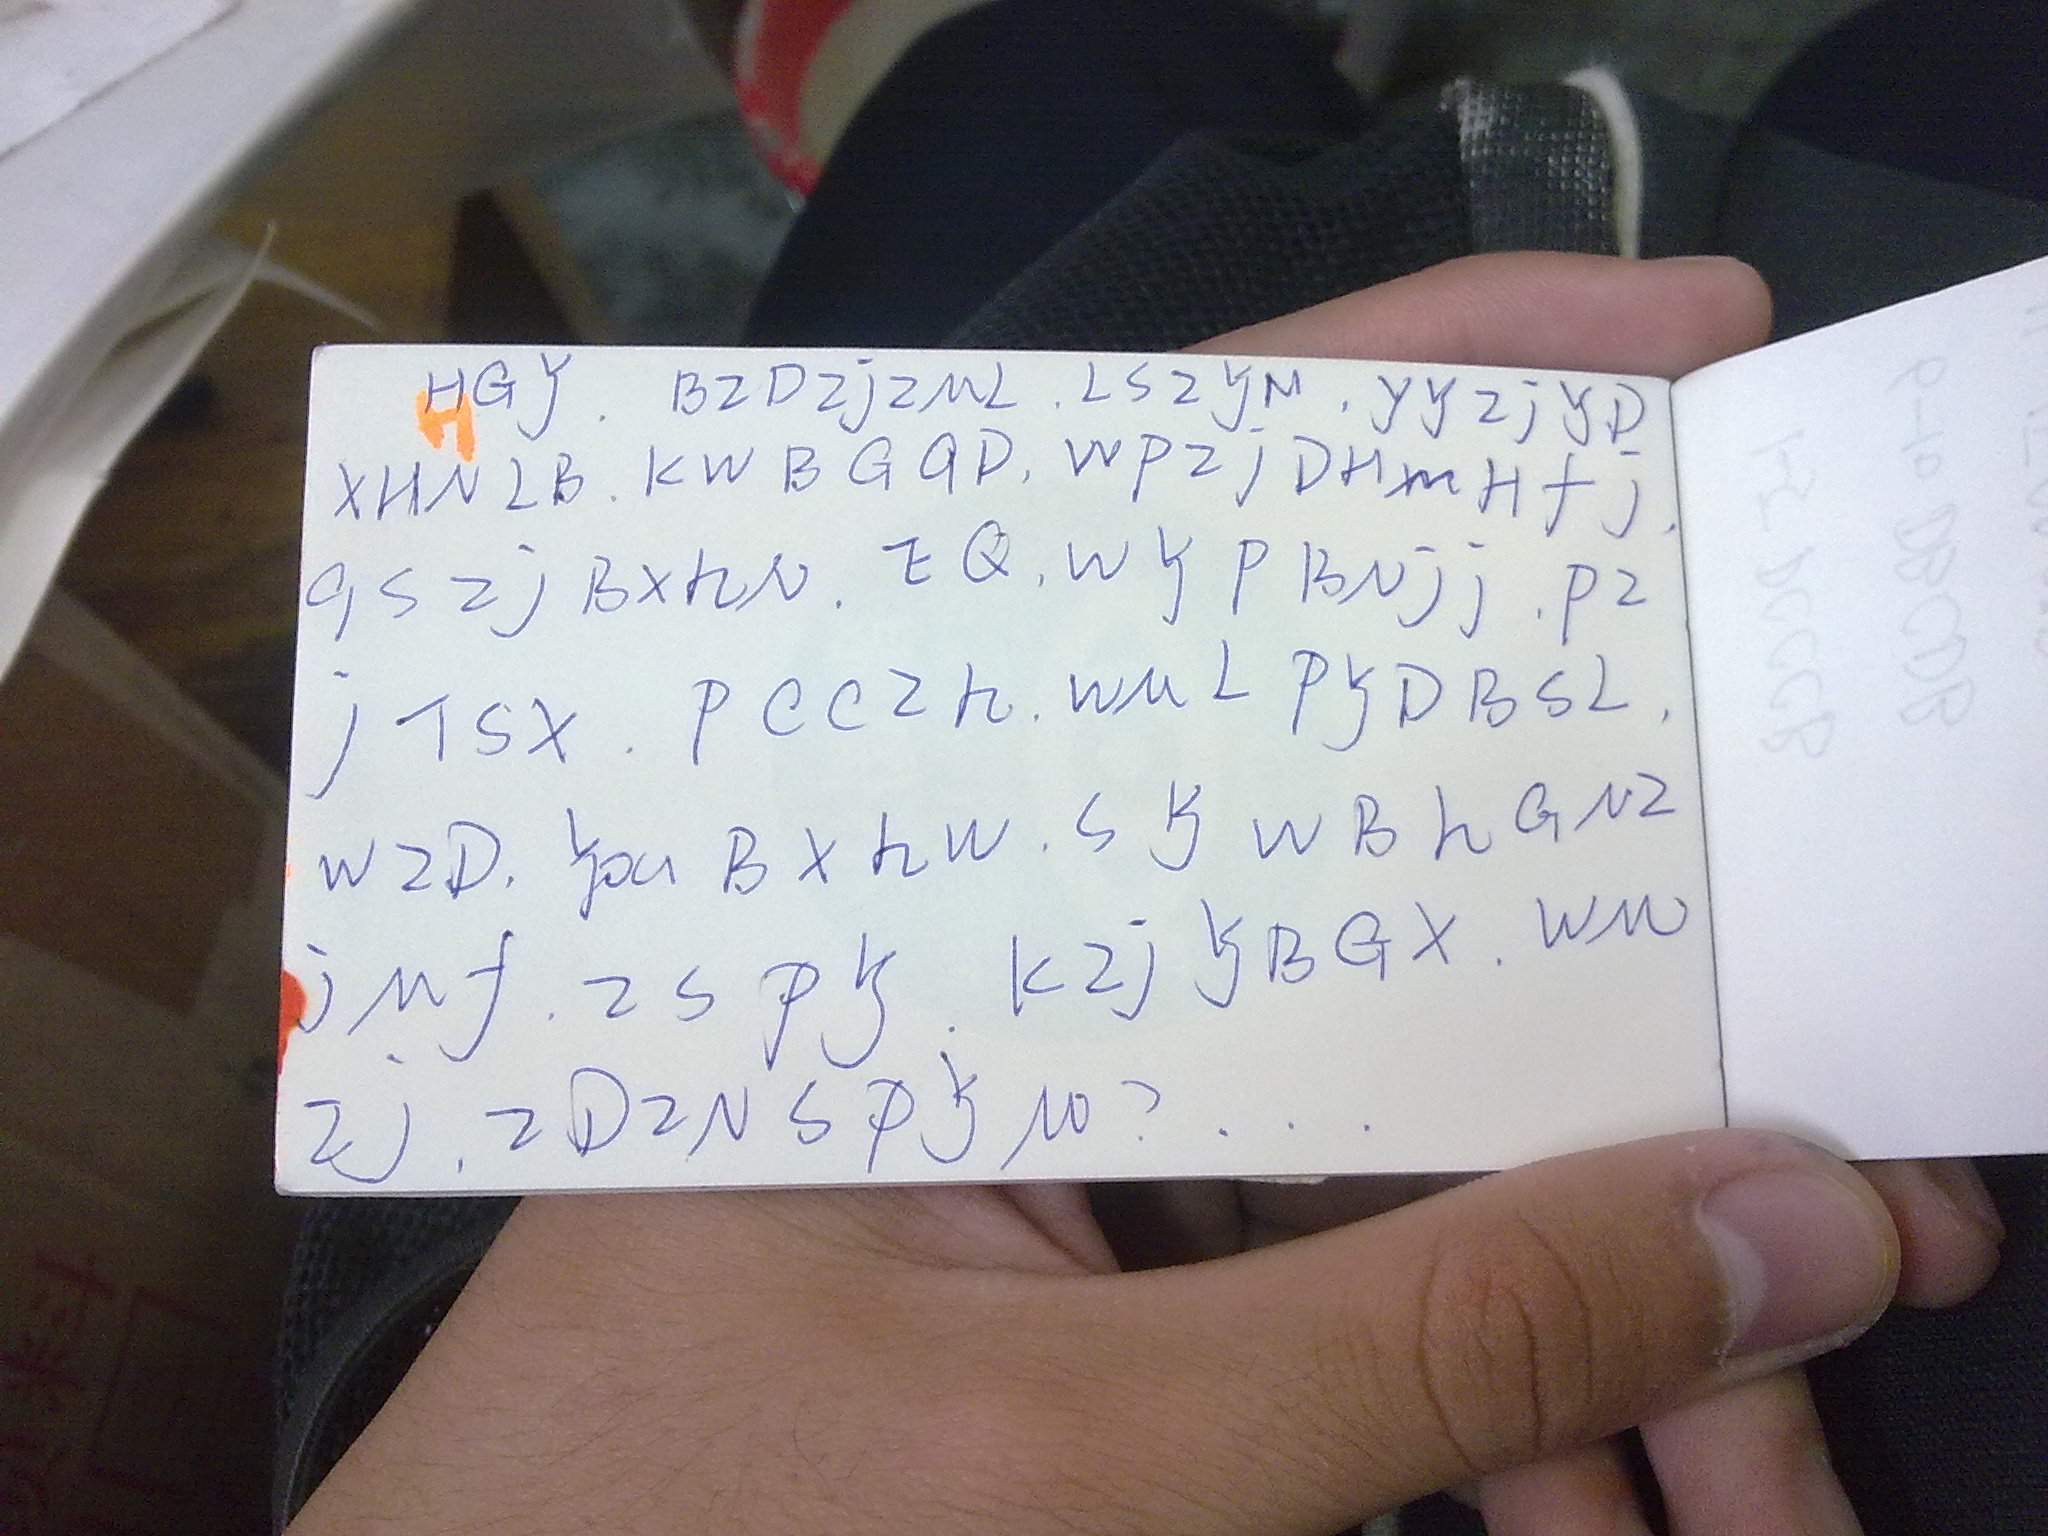 HGY. BZDZjZML. LSZYM. YYZjYD
XHNLB. KWBGQD. WPZjDHmHfj.
qSZjBXhN. ZQ. WYPBNjj. PZ
jTSX. PCCZh. WML PYDBSL.
WZD. You BXhW. SYWBhGNZ
jMf. ZSPY. KZjYBGX. WM
Zj. ZDZNSPYM? ...
1-5 ACCB
6-10 DBCDB